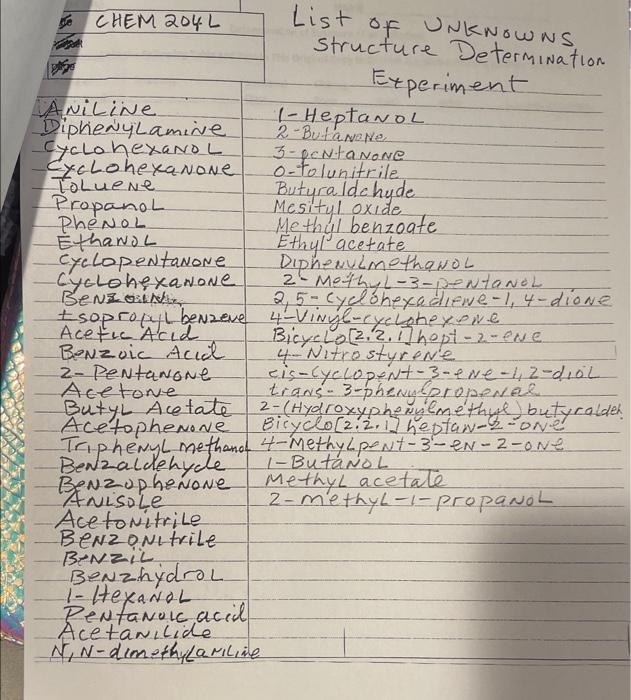 CHEM 204L
List of UNKNOWNS
Structure Determination
Experiment
ANILINE
DiphenylamiNe
CyclohexaNOL
CycLohexaNONe
ToLueNe
PropaNoL
PheNOL
EthaNOL
CyclopeNtaNONe
CycLohexaNONe
BeNzoiN
Isopropyl beNzeNe
Acetic Acid
BeNzoic Acid
2-PeNtaNoNe
AcetoNe
Butyl Acetate
AcetopheNoNe
TriphenyL methaNol
BeNzaldehyde
BeNzopheNoNe
ANisoLe
AcetoNitrile
BeNzoNitrile
BeNziL
BeNzhydroL
1-HexaNoL
PeNtaNoic acid
AcetaNilide
N,N-dimethylaNiliNe
1-HeptaNoL
2-ButaNoNe
3-peNtaNoNe
o-tolunitrile
Butyraldehyde
Mesityl oxide
Methyl benzoate
Ethyl acetate
DiphenylmethaNoL
2-MethyL-3-peNtaNoL
2,5-cyclohexadieNe-1,4-dione
4-Vinyl-cyclohexeNe
Bicyclo[2.2.1]hept-2-eNe
4-NitrostyreNe
cis-CyclopeNt-3-eNe-1,2-dioL
trans-3-phenylpropeNal
2-(Hydroxyphenylmethyl)butyraldeh
Bicyclo[2.2.1]heptaN-2-oNe
4-MethylpeNt-3-eN-2-oNe
1-ButaNoL
Methyl acetate
2-methyl-1-propaNoL